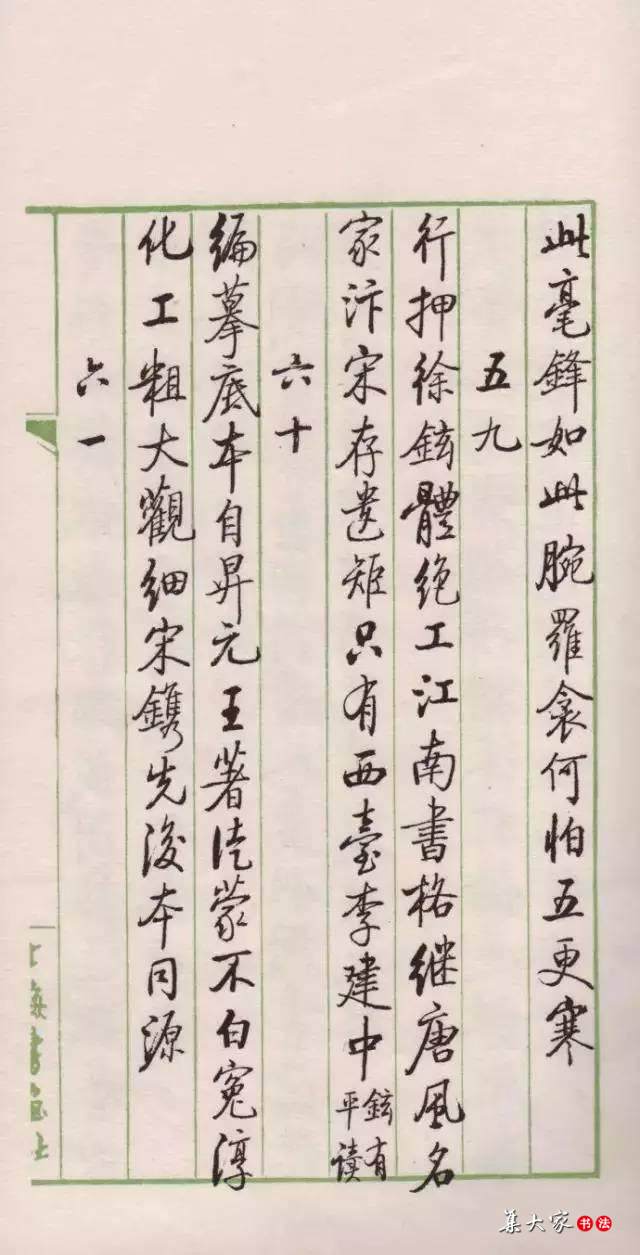 此毫鋒如此腕羅衾何怕五更寒
五九
行押徐鉉體絶工江南書格繼唐風名
家汴宋存遺矩只有西臺李建中鉉有平讀
六十
編摹底本自昇元王著徒蒙不白冤淳
化工粗大觀細宋鐫先後本同源
六一
上海書畫社
集大家书法